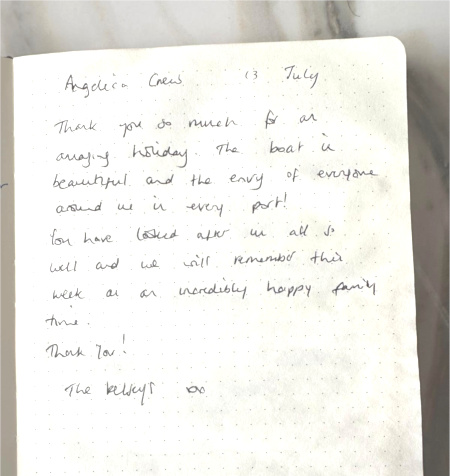 Angelica Crew 13 July
Thank you so much for an
amazing holiday. The boat is
beautiful and the envy of everyone
around us in every port!
You have looked after us all so
well and we will remember this
week as an incredibly happy family
time.
Thank You!
The Kelseys xx